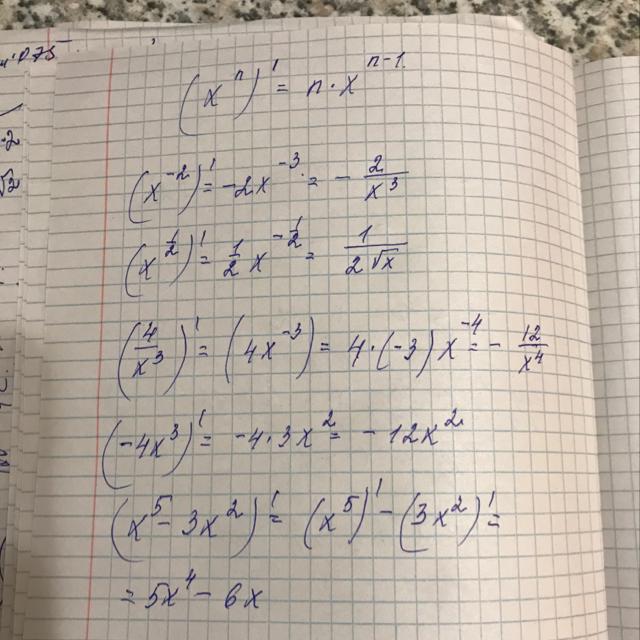 (xⁿ)' = n·xⁿ⁻¹
(x⁻²)' = -2x⁻³ = - 2/x³
(x^(1/2))' = 1/2 x^(-1/2) = 1/(2√x)
(4/x³)' = (4x⁻³) = 4·(-3)x⁻⁴ = - 12/x⁴
(-4x³)' = -4·3x² = -12x²
(x⁵ - 3x²)' = (x⁵)' - (3x²)' =
= 5x⁴ - 6x